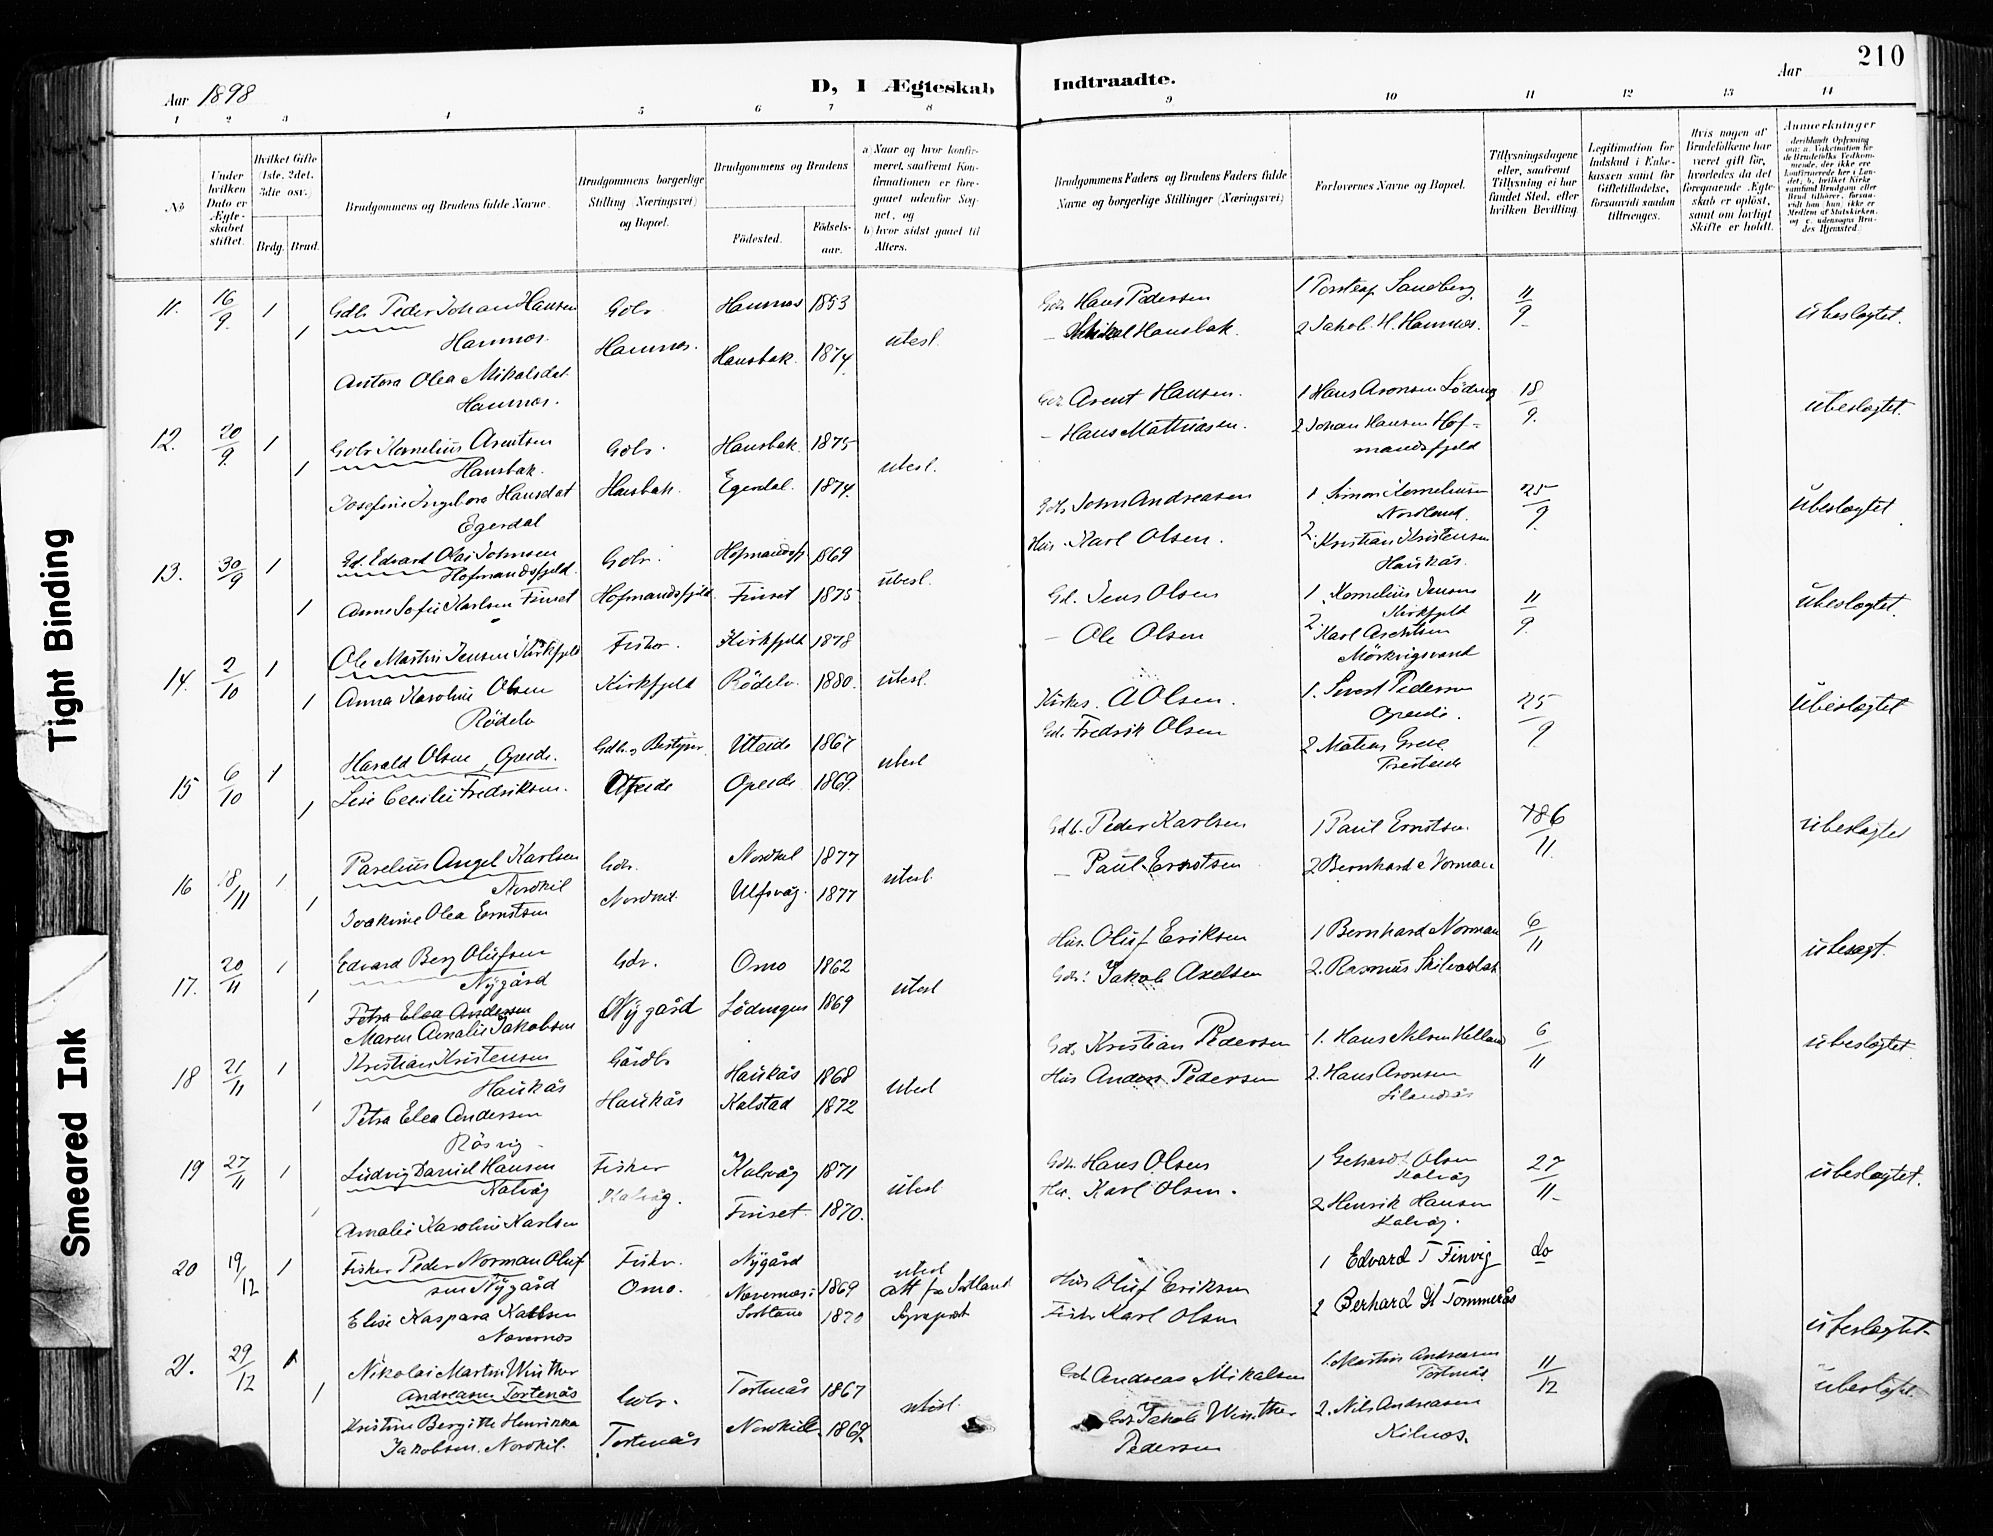 210
Aar 1898
D, I Ægteskab
Indtraadte.
Aar
1 2 3 4 5 6 7 8 9 10 11 12 13 14
№
Under hvilken Dato er Ægteskabet stiftet.
Hvilket Gifte (1ste, 2det, 3die osv.)
Brdg. Brud.
Brudgommens og Brudens fulde Navne.
Brudgommens borgerlige Stilling (Næringsvei) og Bopæl.
Brudgommens og Brudens
Fødested.
Fødselsaar.
a) Naar og hvor konfirmeret, saafremt Konfirmationen er foregaaet udenfor Sognet, og
b) hvor sidst gaaet til Alters.
Brudgommens Faders og Brudens Faders fulde Navne og borgerlige Stillinger (Næringsvei)
Forlovernes Navne og Bopæl.
Tillysningsdagene eller, saafremt Tillysning ei har fundet Sted, efter hvilken Bevilling.
Legitimation for Indskud i Enkekassen samt for Giftetilladelse, forsaavidt saadan tiltrænges.
Hvis nogen af Brudefolkene har været gift før, hvorledes da det foregaaende Ægteskab er opløst, samt om lovligt Skifte er holdt.
Anmerkninger
11. 16/9 1 Gdbr Peder Johan Hansen Gdbr Hamnes 1853
1 Hamnes. Hamnes. Hansbak. 1874 ubesl.
Olea Mikalsdat.
Hamnes.
Gdb Hans Pedersen 1 Sandberg 11/9 ubeslægtet.
Mikal Hansbak. 2 Jakob H. Hamnes.
12. 20/9 1 Gdbr Kornelius Arentsen Gdbr. Hansbak. 1875
1 Hansbak. Hansbak. Egerdal. 1874. ubesl.
Josefine Ingebora Hansdat
Egerdal
Arent Hansen. 1 Hans Aronsen 18/9. ubeslægtet.
Hans Mathiasen. 2 Johan Hansen Hofmandsfjeld
13. 30/9 1 Gd. Edvard Olai Johnsen Gdbr. 1869
Hofmandsfjeld.
1 Anne Sofie Karlsen Finset Hofmandsfjeld Finset 1875 ubesl.
John Andreasen 1. Simon Korneliusen 25/9. ubeslægtet
Nordland.
Hus. Karl Olsen. 2. Kristian Kristensen
Haukås.
14. 2/10 1 Ole Martin Jensen Kirkfjeld Fisker. Kirkfjeld 1878
1 Anna Karoline Olsen Kirkfjeld Rödelv 1880. ubesl.
Rödelv
Gd. Jens Olsen 1. Kornelius Jensen 11/9. ubeslægtet.
Kirkfjeld
Ole Olsen 2. Karl
Mörkvigsvand
15 6/10 1 Harald Olsen, Opeide. Uteide 1867 ubesl
1 Lise Cecilie Fredriksen. Opeide Opeide 1869.
A Olsen. 1. Sivert 25/9. ubeslægtet
Opeide.
Fredrik Olsen 2
16 18/11 1 Parelius Angel Karlsen Gdbr. Nordkil 1877 ubesl.
Nordkil
1 Joakime Olea Ernstsen Nordkil. Ulfsvåg. 1877
Gdb. Peder Karlsen 1 Paul Ernstsen 6/11. ubeslægtet
Paul Ernstsen 2 Bernhard Norman
17. 20/11 1 Edvard Berg Olufsen Gdr. Omo 1862 ubesl
Nÿgård
1 Petra Elea Andersen Nÿgård Lödingen 1869
Maren Amalie Jakobsen
Hus. Oluf Eriksen 1 Bernhard Norman 6/11 ubeslægt.
Jakob Axelsen 2. Rasmus
18 21/11 1 Kristian Kristensen Gårdbr Haukås 1868 ubesl
Haukås
1 Petra Elea Andersen Haukås Kalstad 1872
Råsvig
Kristian Pedersen 1. Hans Nilsen Helland 6/11 ubeslægtet.
Hus Anders Pedersen 2. Hans Aronsen
19 27/11 1 Ludvig Daniel Hansen Fisker Kalvåg 1871 ubesl
Kalvåg Kalvåg.
Amalie Karoline Karlsen Finset. 1870.
Hans Olsen 1 Gerhard Olsen 27/11. ubeslægtet.
Kalvåg
Karl Olsen. 2 Henrik Hansen
Kalvåg.
20 19/12 1 Fisker Peder Norman Olufsen Nÿgård Fisker. Nÿgård 1869 ubesl
Elise Kaspara Karlsen Omo. Nævernes i Sortland 1870 att fra Sortland Sogneprest
Nævernes
Hus Oluf Eriksen 1 Edvard T Finvig do ubeslægtet.
Fisker Karl Olsen 2 Berhard H Tommerås
21. 29/12 1 Nikolai Martin Winther
Andreasen Tortenås Gdbr. Tortenås 1867 ubesl.
1 Kristine Bergitte Henrikka Tortenås Nordkill 1869.
Jakobsen. Nordkil.
Gd. Andreas Mikalsen 1. Martin Andreasen 11/12 ubeslægtet.
Tortenås
Jakob Winther 2. Nils Andreasen
Pedersen Kilnes.
Tight Binding
Smeared Ink